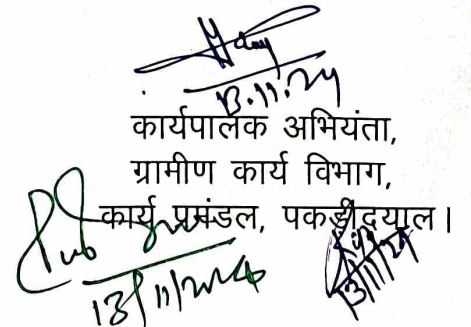 13.11.24
कार्यपालक अभियंता,
ग्रामीण कार्य विभाग,
कार्य प्रमंडल, पकड़ीदयाल।
13/11/2024
13/11/24